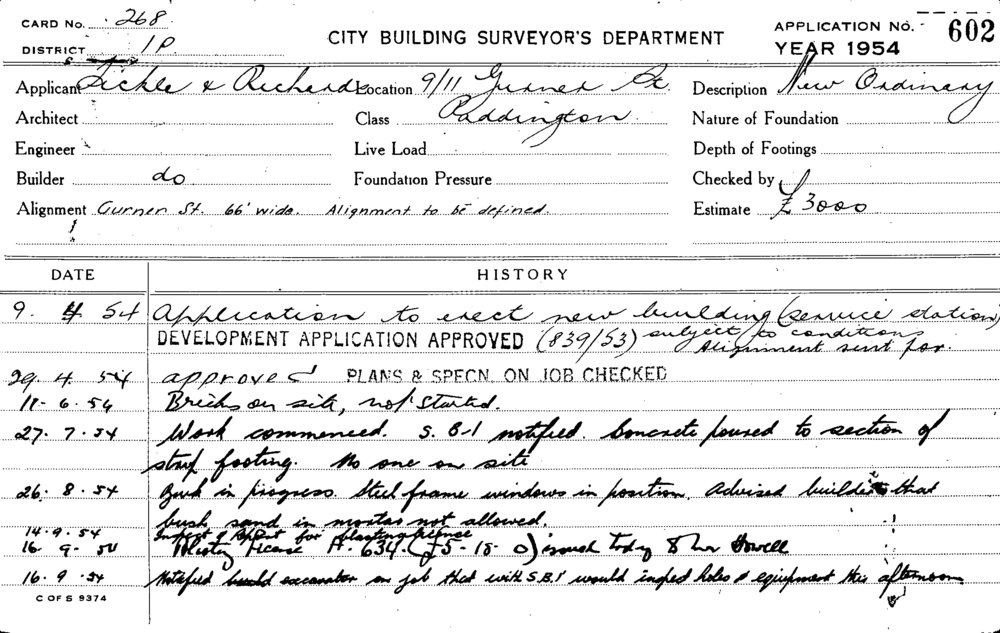 CARD No. 268
DISTRICT 1P
CITY BUILDING SURVEYOR'S DEPARTMENT
APPLICATION No. 602
YEAR 1954
Applicant Tickle & Richards Location 9/11 Gurner St. Description New Ordinary
Architect Class Paddington Nature of Foundation
Engineer Live Load Depth of Footings
Builder do Foundation Pressure Checked by
Alignment Gurner St. 66' wide. Alignment to be defined. Estimate £3000
DATE HISTORY
9. 4 54 Application to erect new building (service station)
DEVELOPMENT APPLICATION APPROVED (839/53) subject to conditions
Alignment sent for.
29. 4. 54 approved PLANS & SPECN. ON JOB CHECKED
11- 6. 54 Bricks on site, not started.
27. 7. 54 Work commenced. S. B-1 notified. Concrete poured to section of
strip footing. No one on site
26. 8. 54 Work in progress. Steel frame windows in position. Advised builder that
bush sand in mortar not allowed.
14. 9. 54 Inspect & Report for blasting licence
16. 9. 54 Blasting license A-634. (£5-15-0) issued today
16. 9. 54 Notified excavator on job that with S.B.1 would inspect holes & equipment this afternoon
C OF S 9374